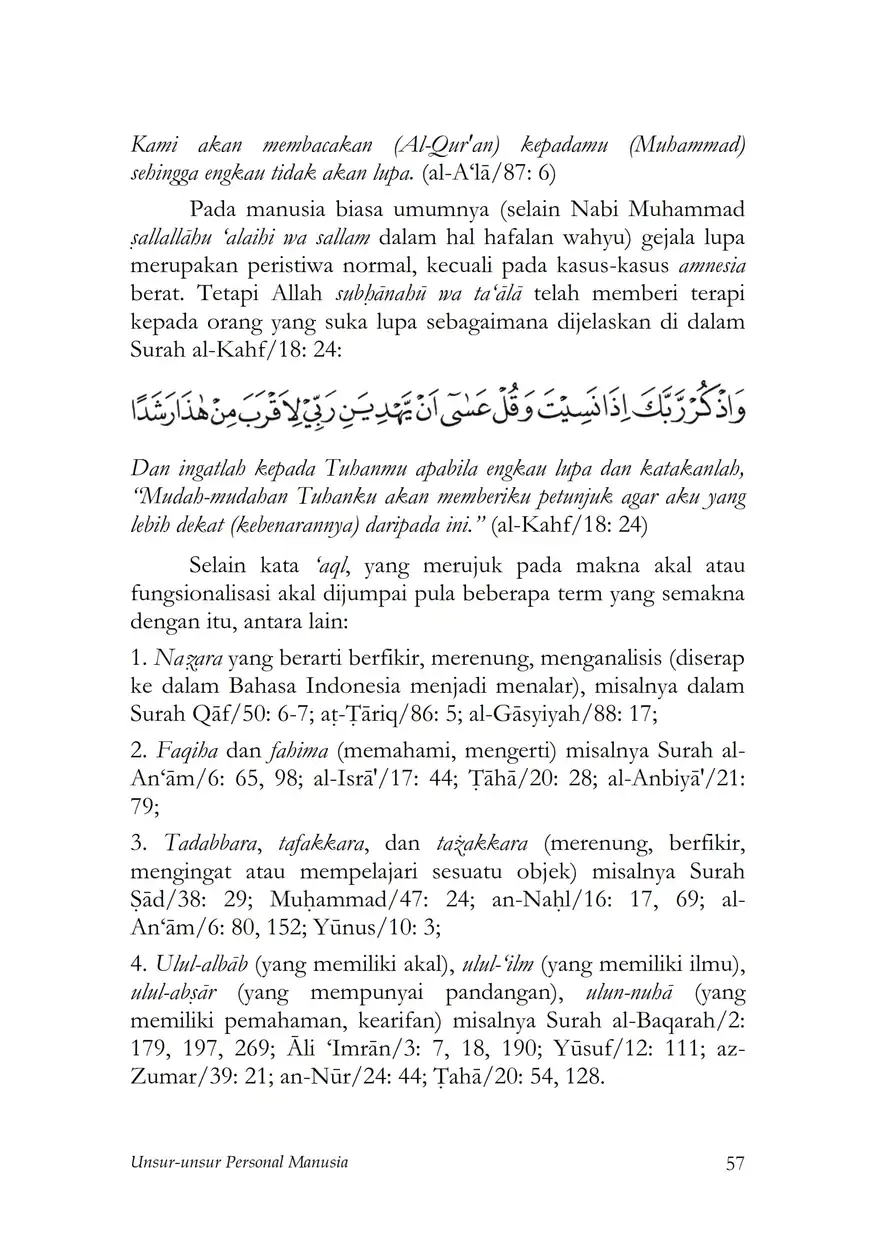 Kami akan membacakan (Al-Qur'an) kepadamu (Muhammad)
sehingga engkau tidak akan lupa. (al-A‘lā/87: 6)
Pada manusia biasa umumnya (selain Nabi Muhammad
ṣallallāhu ‘alaihi wa sallam dalam hal hafalan wahyu) gejala lupa
merupakan peristiwa normal, kecuali pada kasus-kasus amnesia
berat. Tetapi Allah subḥānahū wa ta‘ālā telah memberi terapi
kepada orang yang suka lupa sebagaimana dijelaskan di dalam
Surah al-Kahf/18: 24:
وَاذْكُرْ رَّبَّكَ اِذَا نَسِيْتَ وَقُلْ عَسٰٓى اَنْ يَّهْدِيَنِ رَبِّيْ لِاَقْرَبَ مِنْ هٰذَا رَشَدًا
Dan ingatlah kepada Tuhanmu apabila engkau lupa dan katakanlah,
“Mudah-mudahan Tuhanku akan memberiku petunjuk agar aku yang
lebih dekat (kebenarannya) daripada ini.” (al-Kahf/18: 24)
Selain kata ‘aql, yang merujuk pada makna akal atau
fungsionalisasi akal dijumpai pula beberapa term yang semakna
dengan itu, antara lain:
1. Naẓara yang berarti berfikir, merenung, menganalisis (diserap
ke dalam Bahasa Indonesia menjadi menalar), misalnya dalam
Surah Qāf/50: 6-7; aṭ-Ṭāriq/86: 5; al-Gāsyiyah/88: 17;
2. Faqiha dan fahima (memahami, mengerti) misalnya Surah al-
An‘ām/6: 65, 98; al-Isrā'/17: 44; Ṭāhā/20: 28; al-Anbiyā'/21:
79;
3. Tadabbara, tafakkara, dan tażakkara (merenung, berfikir,
mengingat atau mempelajari sesuatu objek) misalnya Surah
Ṣād/38: 29; Muḥammad/47: 24; an-Naḥl/16: 17, 69; al-
An‘ām/6: 80, 152; Yūnus/10: 3;
4. Ulul-albāb (yang memiliki akal), ulul-‘ilm (yang memiliki ilmu),
ulul-abṣār (yang mempunyai pandangan), ulun-nuhā (yang
memiliki pemahaman, kearifan) misalnya Surah al-Baqarah/2:
179, 197, 269; Āli ‘Imrān/3: 7, 18, 190; Yūsuf/12: 111; az-
Zumar/39: 21; an-Nūr/24: 44; Ṭahā/20: 54, 128.
Unsur-unsur Personal Manusia 57